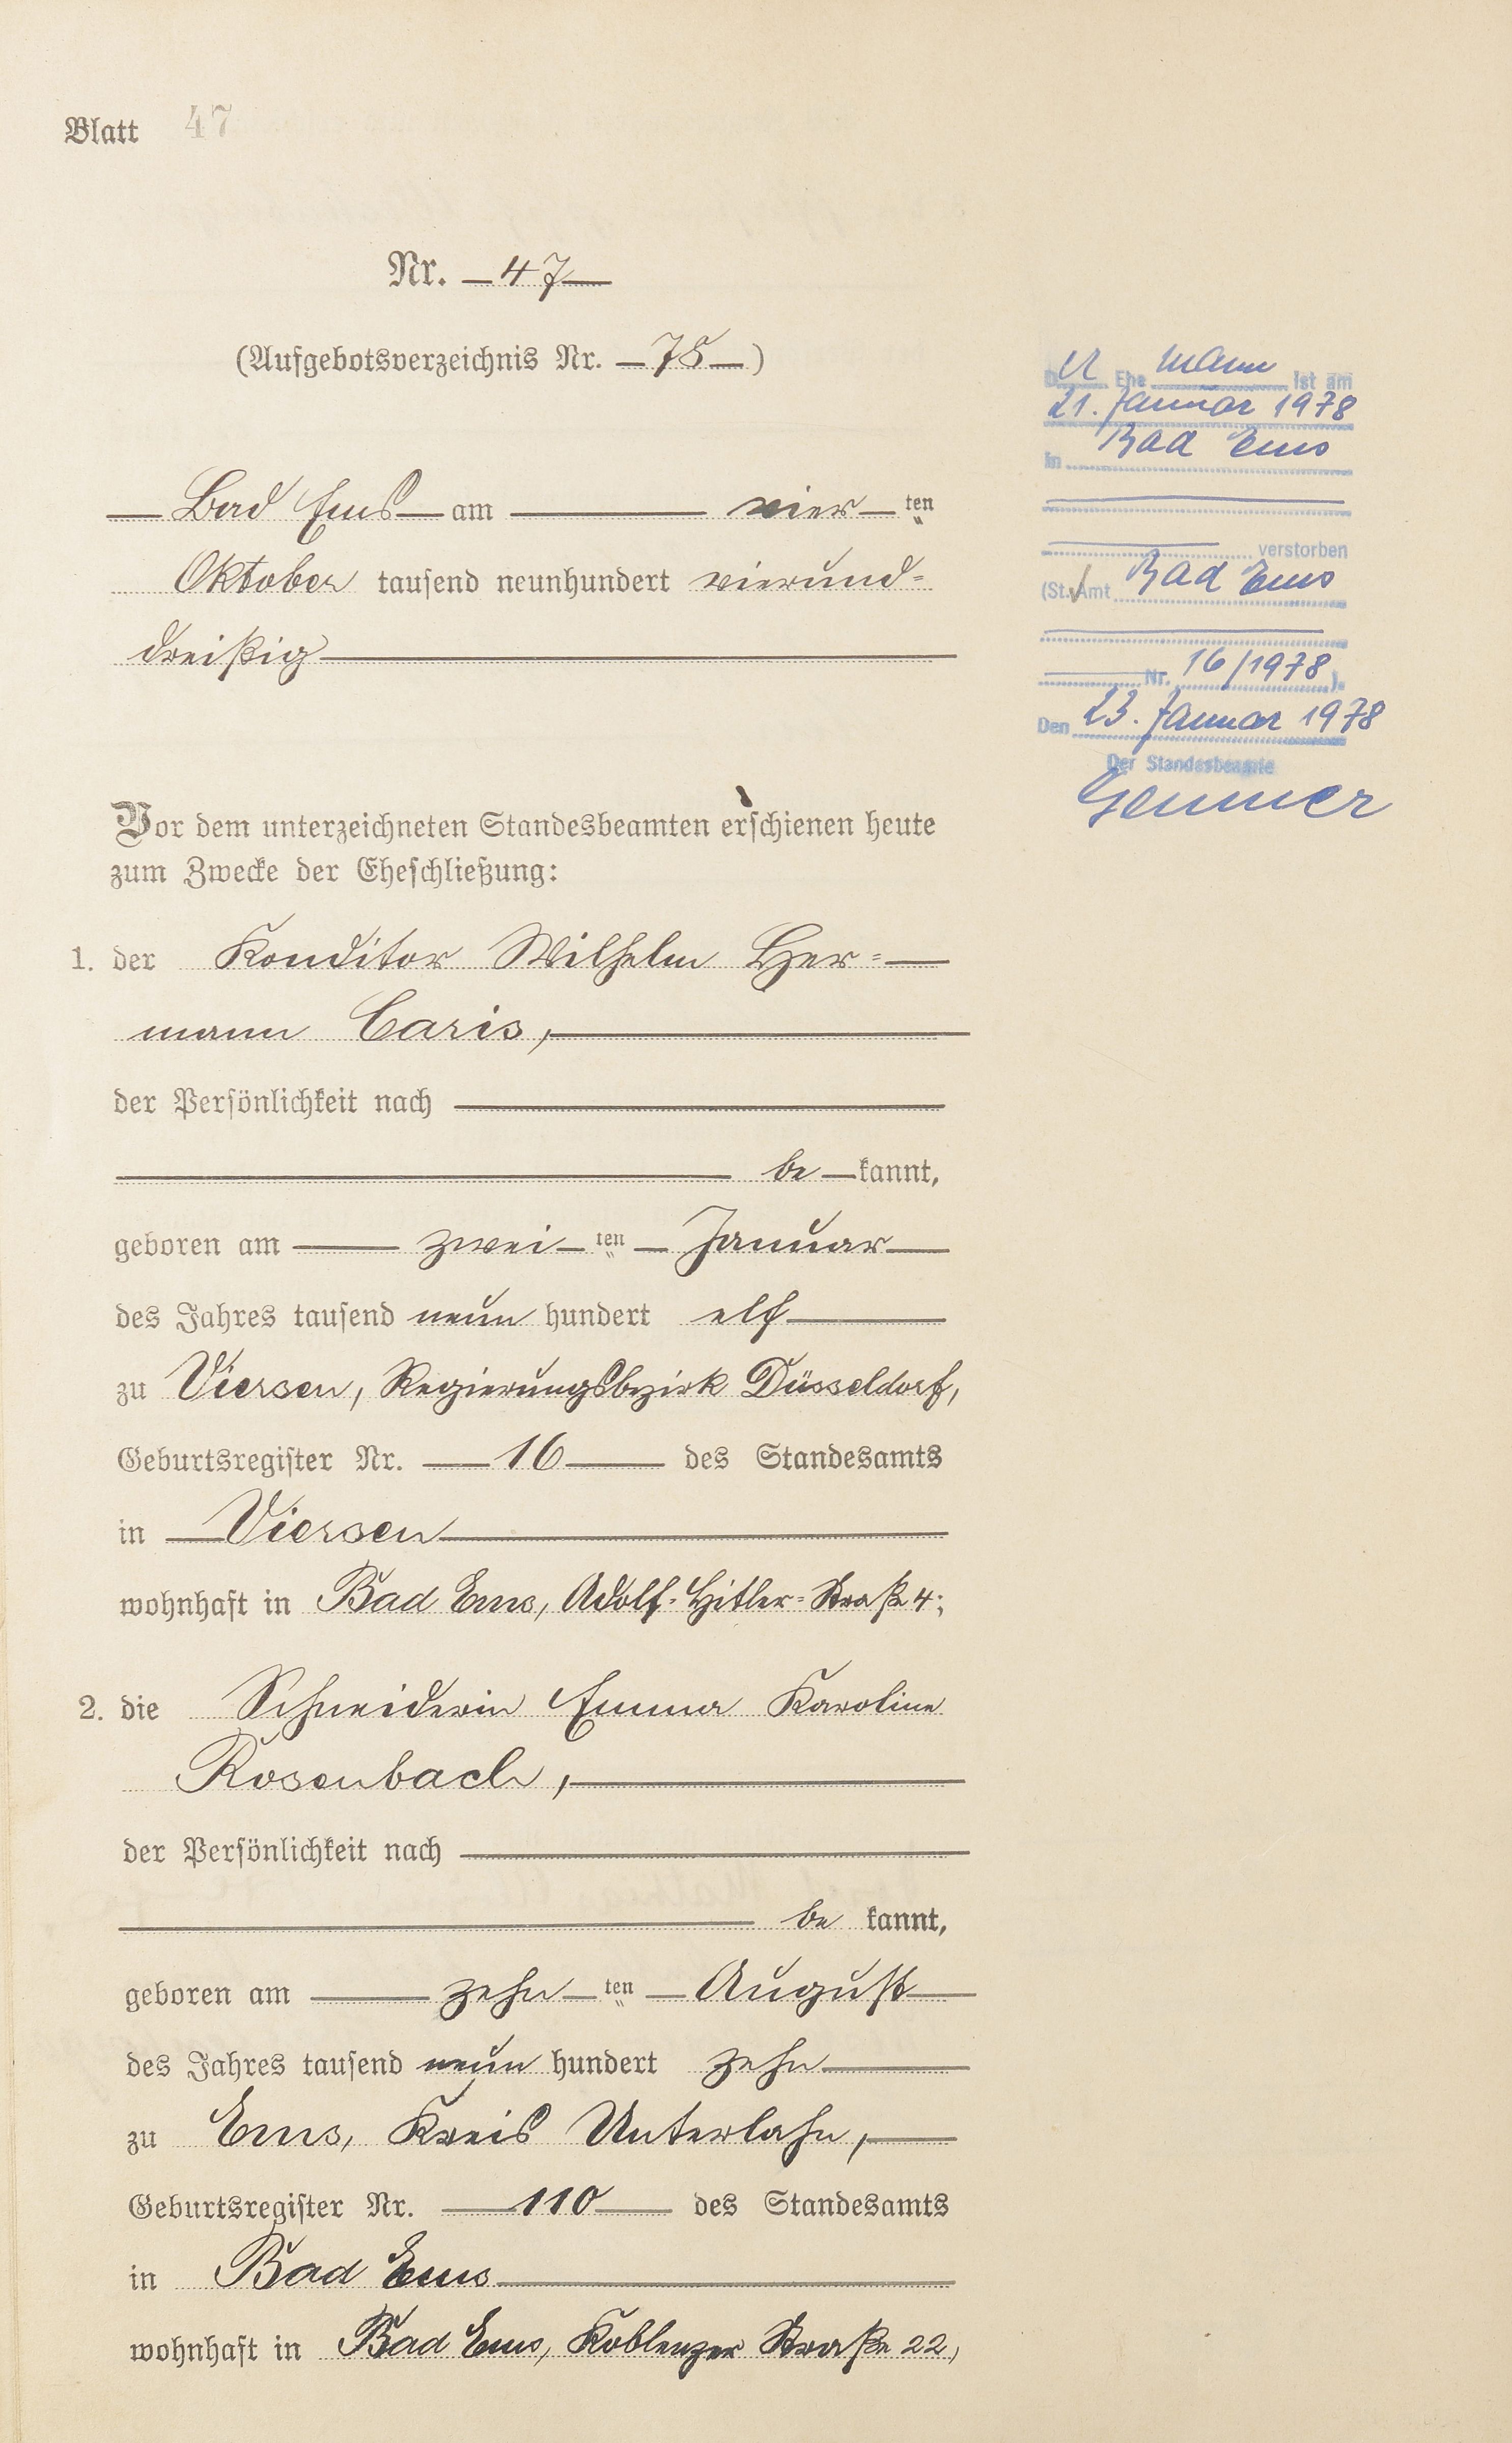 Blatt 47
Nr. 47
(Aufgebotsverzeichnis Nr. 75)
Bad Ems am vierten
Oktober tausend neunhundert vierund=
dreißig
Vor dem unterzeichneten Standesbeamten erschienen heute
zum Zwecke der Eheschließung:
1. der Konditor Wilhelm Her=
mann Caris,
der Persönlichkeit nach
be kannt,
geboren am zwei ten Januar
des Jahres tausend neun hundert elf
zu Viersen, Regierungsbezirk Düsseldorf,
Geburtsregister Nr. 16 des Standesamts
in Viersen
wohnhaft in Bad Ems, Adolf=Hitler=Straße 4;
2. die Schneiderin Emma Karoline
Rosenbach,
der Persönlichkeit nach
be kannt,
geboren am zehn ten August
des Jahres tausend neun hundert zehn
zu Ems, Kreis Unterlahn,
Geburtsregister Nr. 110 des Standesamts
in Bad Ems
wohnhaft in Bad Ems, Koblenzer Straße 22,
Der Ehe mann ist am
21. Januar 1978
in Bad Ems
verstorben
(St. Amt Bad Ems
Nr. 16/1978).
Den 23. Januar 1978
Der Standesbeamte